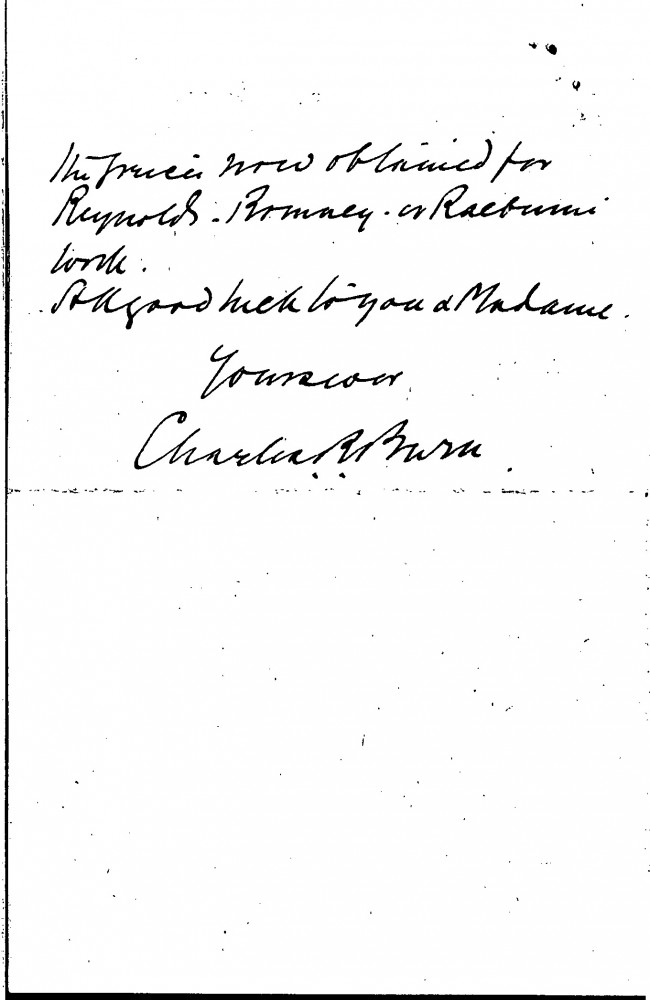 the prices now obtained for
Reynolds - Romney - or Raeburns
work.
All good luck to you & Madame.
Yours ever
Charles R Burn